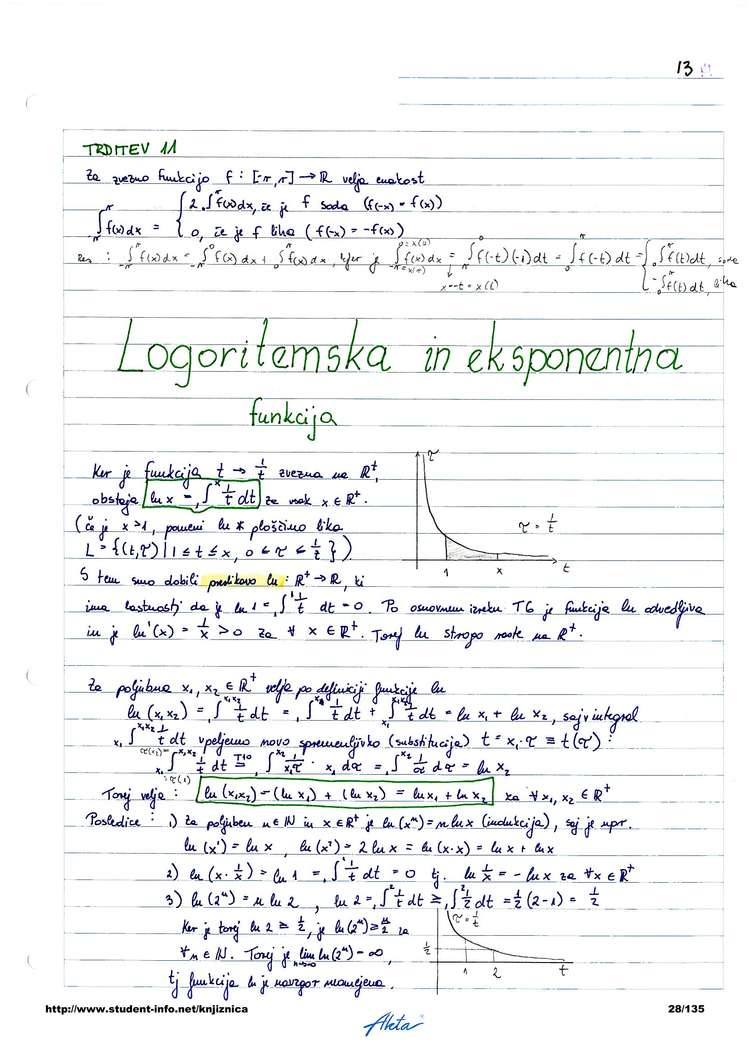 13
TRDITEV 11
Za zvezno funkcijo f : [-π, π] → ℝ velja enakost
∫_{-π}^{π} f(x) dx = { 2 ∫_0^π f(x) dx, če je f soda (f(-x) = f(x))
0, če je f liha (f(-x) = -f(x))
: ∫_{-π}^{π} f(x) dx = ∫_{-π}^0 f(x) dx + ∫_0^π f(x) dx, kjer je ∫_{-π=x(π)}^{0=x(0)} f(x) dx = ∫_π^0 f(-t)(-1) dt = ∫_0^π f(-t) dt = { ∫_0^π f(t) dt, soda
x = -t = x(t)
-∫_0^π f(t) dt, liha
Logoritemska in eksponentna
funkcija
Ker je funkcija t → 1/t zvezna na ℝ⁺,
obstaja ln x = ∫_1^x 1/t dt za vsak x ∈ ℝ⁺.
(če je x > 1, pomeni ln x ploščino lika
L = {(t, τ) | 1 ≤ t ≤ x, 0 ≤ τ ≤ 1/t})
τ
τ = 1/t
1 x t
S tem smo dobili preslikavo ln : ℝ⁺ → ℝ, ki
ima lastnosti da je ln 1 = ∫_1^1 1/t dt = 0. Po osnovnem izreku je funkcija ln odvedljiva
in je ln'(x) = 1/x > 0 za ∀ x ∈ ℝ⁺. Torej ln strogo raste na ℝ⁺.
Za poljubna x₁, x₂ ∈ ℝ⁺ velja po definiciji funkcije ln
ln (x₁x₂) = ∫_1^{x₁x₂} 1/t dt = ∫_1^{x₁} 1/t dt + ∫_{x₁}^{x₁x₂} 1/t dt = ln x₁ + ln x₂, saj v integral
∫_{x₁}^{x₁x₂} 1/t dt vpeljemo novo spremenljivko (substitucija) t = x₁·τ ≡ t(τ) :
∫_{x₁=τ(1)}^{τ(x₂)=x₁x₂} 1/t dt = ∫_1^{x₂} 1/(x₁τ) · x₁ dτ = ∫_1^{x₂} 1/τ dτ = ln x₂
Torej velja : ln (x₁x₂) = (ln x₁) + (ln x₂) = ln x₁ + ln x₂ za ∀ x₁, x₂ ∈ ℝ⁺
Posledice : 1) za poljuben n ∈ ℕ in x ∈ ℝ⁺ je ln (xⁿ) = n ln x (indukcija), saj je npr.
ln (x¹) = ln x, ln (x²) = 2 ln x = ln (x·x) = ln x + ln x
2) ln (x · 1/x) = ln 1 = ∫_1^1 1/t dt = 0 tj. ln 1/x = -ln x za ∀x ∈ ℝ⁺
3) ln (2ⁿ) = n ln 2, ln 2 = ∫_1^2 1/t dt ≥ ∫_1^2 1/2 dt = 1/2 (2-1) = 1/2
Ker je torej ln 2 ≥ 1/2, je ln(2ⁿ) ≥ n/2 za
∀n ∈ ℕ. Torej je lim_{n→∞} ln(2ⁿ) = ∞,
tj funkcija ln je navzgor neomejena.
τ = 1/t
1/2
1 2 t
http://www.student-info.net/knjiznica
28/135
Akta